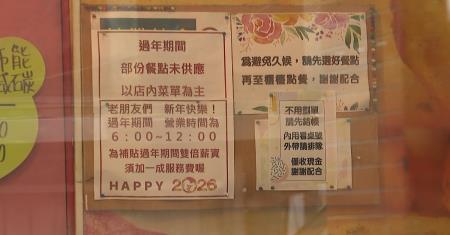 過年期間
部份餐點未供應
以店內菜單為主
老朋友們 新年快樂！
過年期間 營業時間為
6:00~12:00
為補貼過年期間雙倍薪資
須加一成服務費喔
HAPPY 2026
為避免久候，請先選好餐點
再至櫃檯點餐，謝謝配合
不用劃單
請先結帳
內用看桌號
外帶請排隊
僅收現金
謝謝配合
能